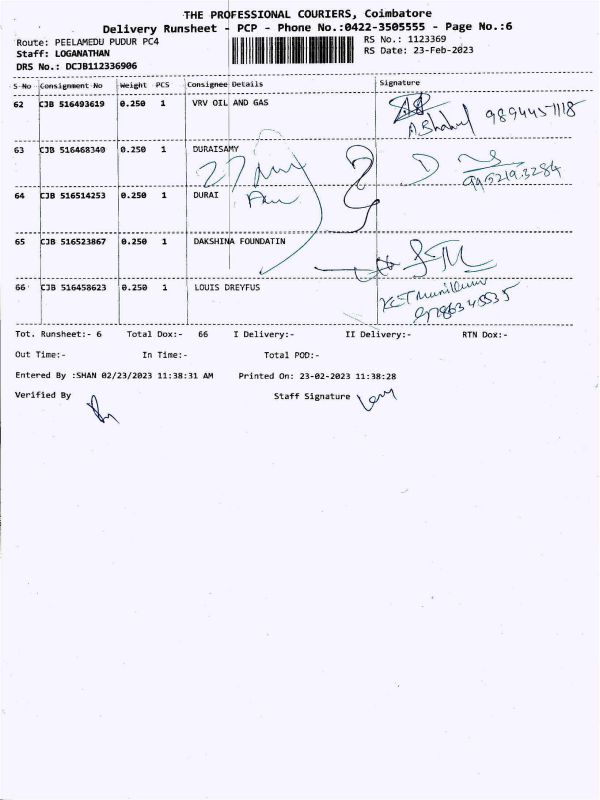 THE PROFESSIONAL COURIERS, Coimbatore
Delivery Runsheet - PCP - Phone No.:0422-3505555 - Page No.:6
Route: PEELAMEDU PUDUR PC4
RS No.: 1123369
Staff: LOGANATHAN
RS Date: 23-Feb-2023
DRS No.: DCJB112336906
S No Consignment No Weight PCS Consignee Details Signature
62 CJB 516493619 0.250 1 VRV OIL AND GAS
63 CJB 516468340 0.250 1 DURAISAMY
64 CJB 516514253 0.250 1 DURAI
65 CJB 516523867 0.250 1 DAKSHINA FOUNDATIN
66 CJB 516458623 0.250 1 LOUIS DREYFUS
Tot. Runsheet:- 6 Total Dox:- 66 I Delivery:- II Delivery:- RTN Dox:-
Out Time:- In Time:- Total POD:-
Entered By :SHAN 02/23/2023 11:38:31 AM Printed On: 23-02-2023 11:38:28
Verified By Staff Signature